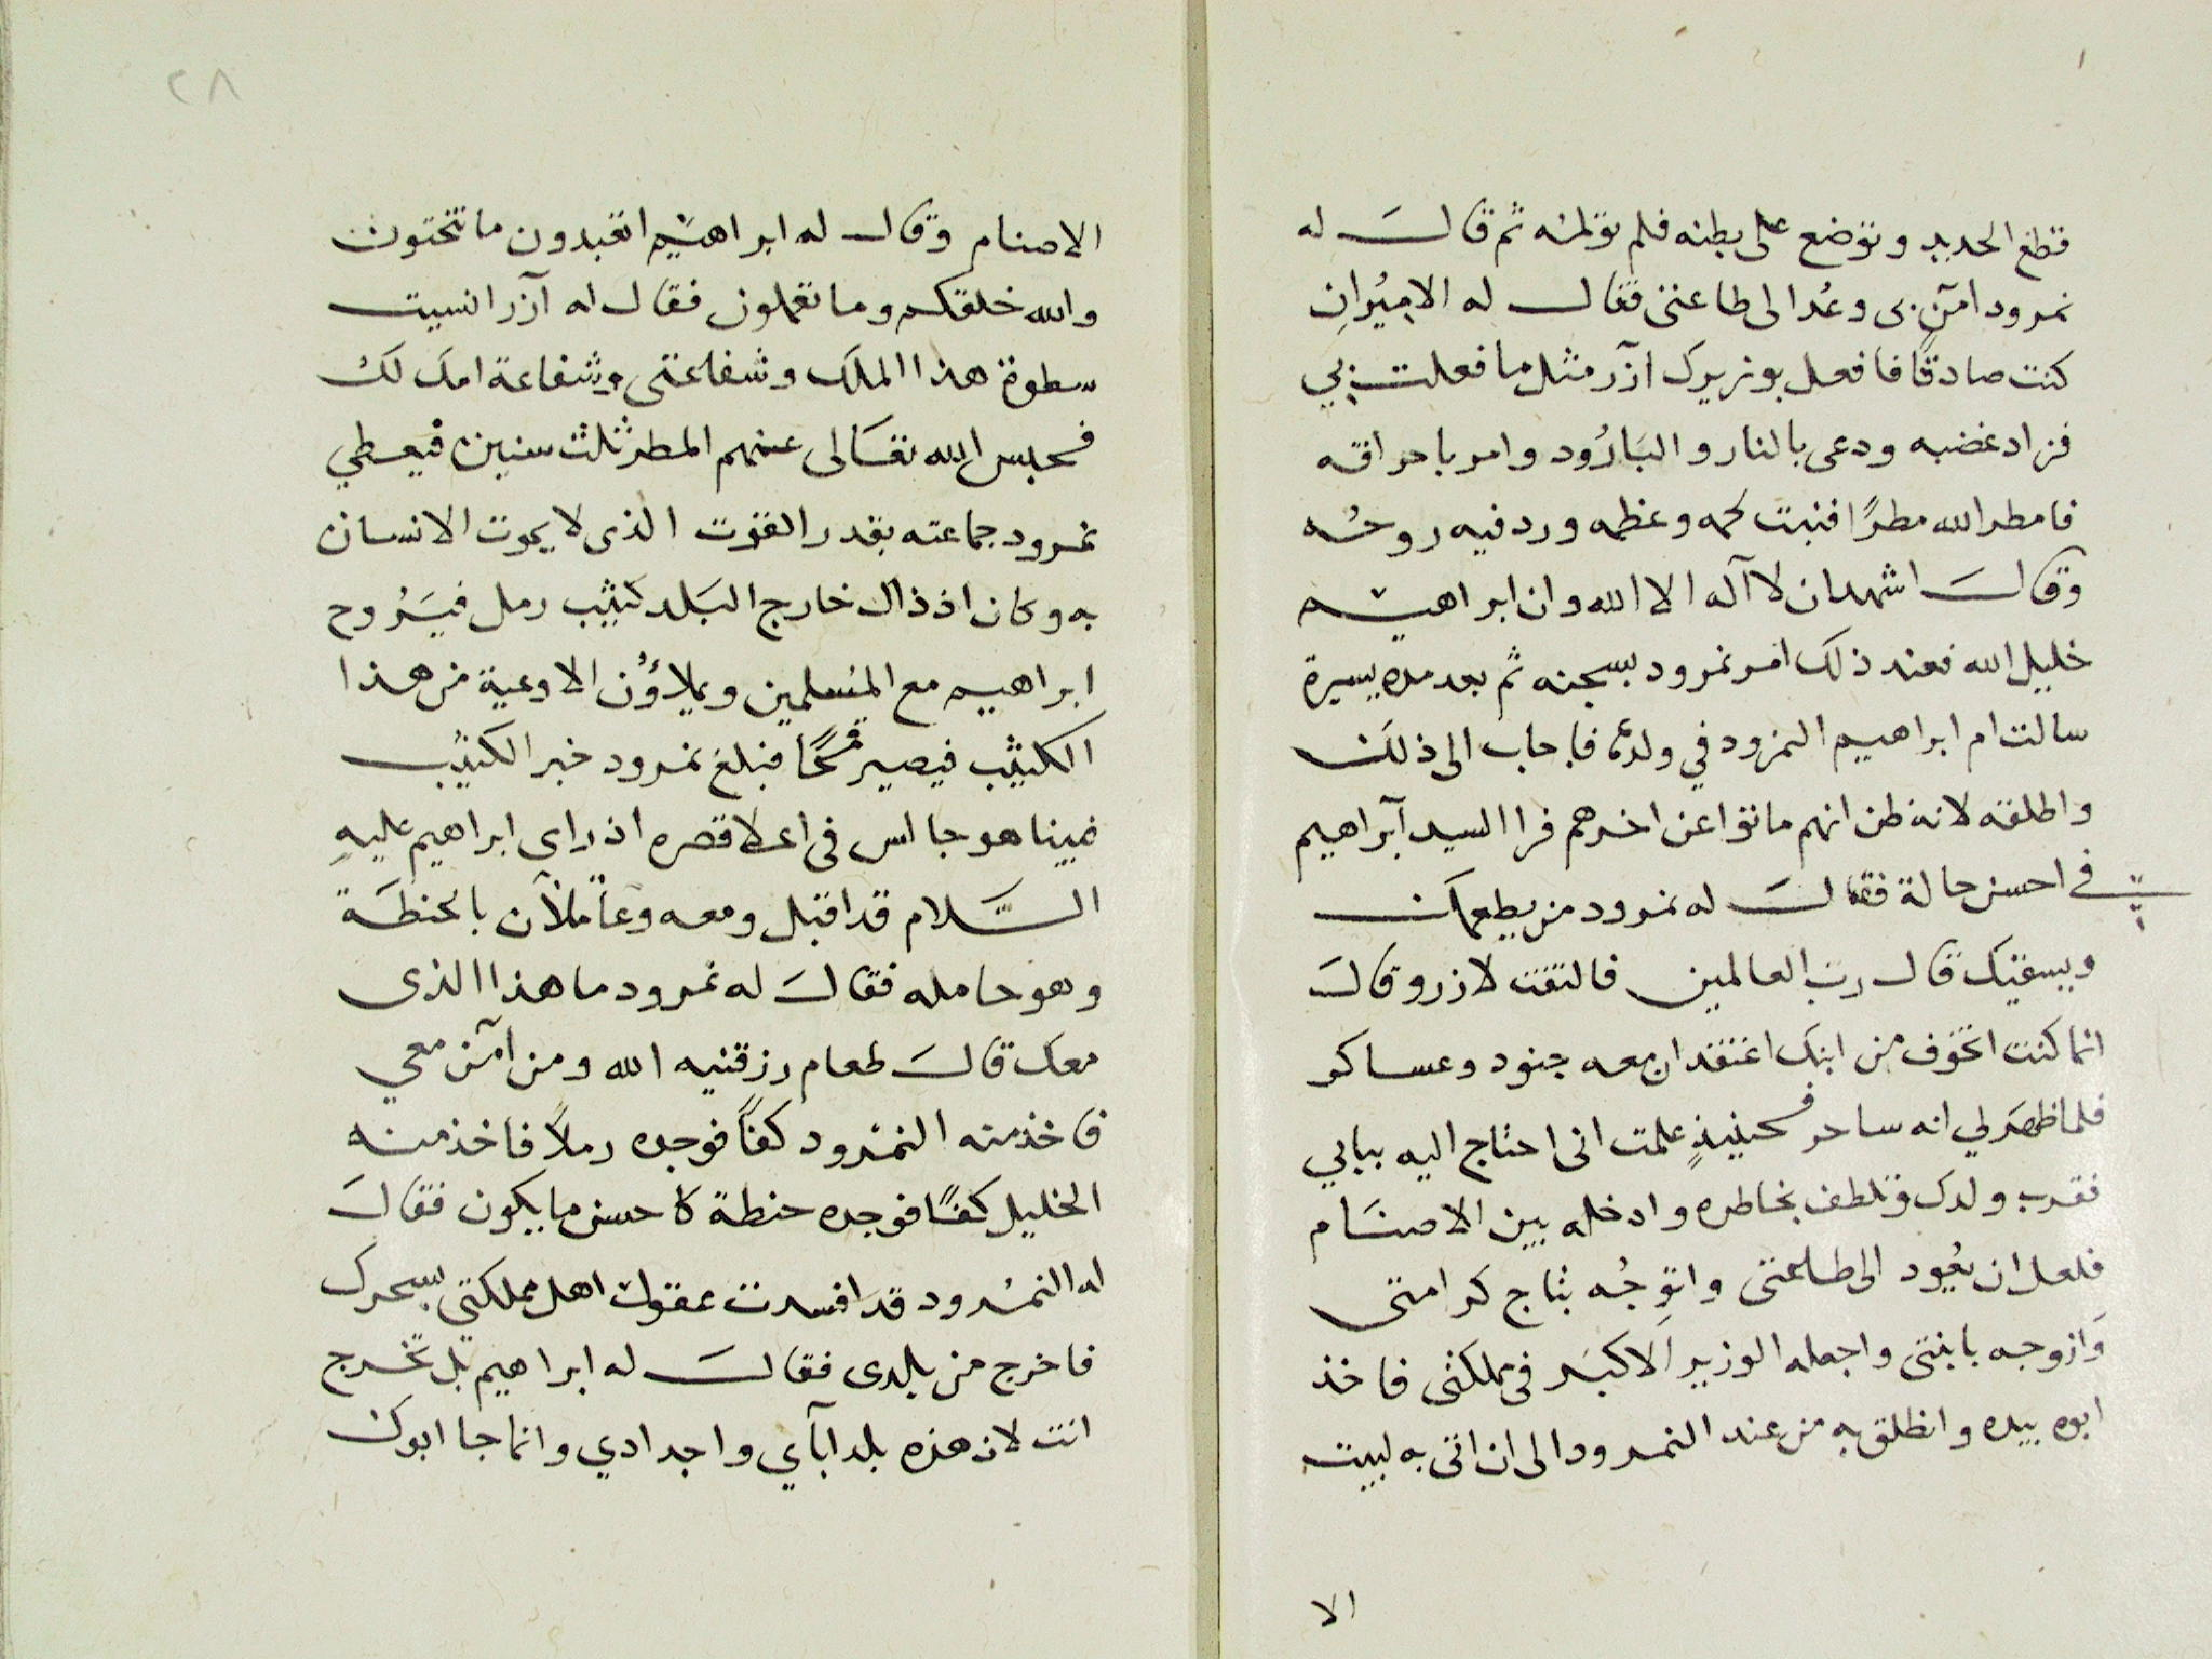 قطع الحديد وتوضع على بطنه فلم تولمه ثم قال له
نمرود امن بى وعُد الى طاعتى فقال له الاميُر انِ
كنت صادقًا فافعل بوزيرك آزر مثل ما فعلت بي
فزاد غضبه ودعى بالنار والبَارُود وامر باحراقه
فامطر الله مطرًا فنبت لحمه وعظمه ورد فيه روحُه
وقال اشهد ان لا آله الا الله وان ابراهيم
خليل الله فعند ذلك امر نمرود بسجنه ثم بعد مده يسيرة
سالت ام ابراهيم النمرود في ولدها فاجاب الى ذلك
واطلقه لانه ظن انهم ماتوا عن اخرهم فراا السيد آبراهيم
في احسن حالة فقال له نمرود من يطعمك
ويسقيك قال رب العالمين فالتفت لازر وقال
انما كنت اتخوف من ابنك اعتقد ان معه جنود وعساكر
فلما ظهرَ لي انه ساحر فحينيذٍ علمت انى احتاج اليه ببابي
فقرب ولدك وتلطف بخاطره وادخله بين الاصنَام
فلعل ان يعُود الى طاعتى واتوِجُه بتاج كرامتى
وَازوجه بابنتى واجعله الوزير الاكبَر في مملكتى فاخذ
ابوه بيده وانطلق به من عند النمرود الى ان اتى به لبيت
الا
٢٨
الاصنام وقال له ابراهيم اتعبدون ما تنحتون
والله خلقكم وما تعملون فقال له آزر انسيت
سطوة هذا الملك وشفاعتى وشفاعة امك لك
فحبس الله تعَالى عنهم المطر ثلث سنين فيعطي
نمرود جماعته بقدر القوت الذى لا يموت الانسان
به وكان اذ ذاك خارج البَلد كثيب رمل فيَرُوح
ابراهيم مع المسلمين ويملاؤُن الاوعية من هذا
الكثيب فيصير قمحًا فبلغ نمرود خبر الكثيب
فبينا هو جالس فى اعلا قصره اذ راى ابراهيم عليهِ
السَّلام قد اقبل ومعه وعاً ملآن بالحنطَة
وهو حامله فقالَ له نمرود ما هذا الذى
معك قالَ طعام رزقنيه الله ومن آمن معي
فاخذ منه النمرُود كفاً فوجده رملاً فاخذ منه
الخليل كفًا فوجده حنطة كاحسن ما يكون فقالَ
له النمرُود قد افسدت عقول اهل مملكتي بسحرك
فاخرج من بلدى فقالَ له ابراهيم بل تخرج
انت لان هذه بلد آبآي واجدادي وانما جا ابوك